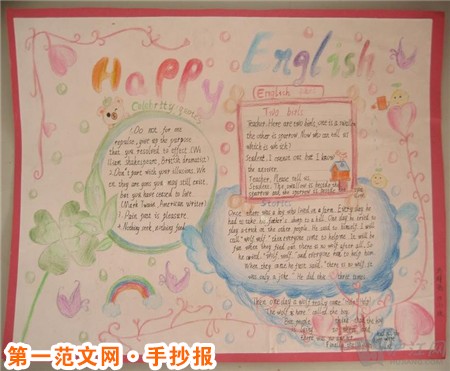 Happy English
Celebrity quotes
1.Do not, for one
repulse, give up the purpose
that you resolved to effect.(Wi
lliam Shakespeare, British dramatist)
2.Don't part with your illusions. Wh
en they are gone you may still exist,
but you have ceased to live
(Mark Twain, American writer)
3. Pain past is pleasure.
4. Nothing seek, nothing find.
English
Two birds
Teacher: Here are two birds, one is a swallow
the other is sparrow. Now who can tell us
which is which?
Student: I cannot but I know
the answer.
Teacher: Please tell us
Student: The swallow is beside the
sparrow and the sparrow is beside
Stories
Once there was a boy who lived in a farm. Every day he
had to take his father's sheep to a hill. One day he
to play a on the other people. He said to himself: I will
call "wolf wolf" then everyone come to help me. It will be
fun when they find out there is no wolf after all. So
he called "Wolf wolf" and everyone ran to help him.
When they came he just said: "there is no wolf it
was only a joke." He did the
Then one day a wolf really came.
The wolf is here" called the boy.
But people
第一范文网·手抄报